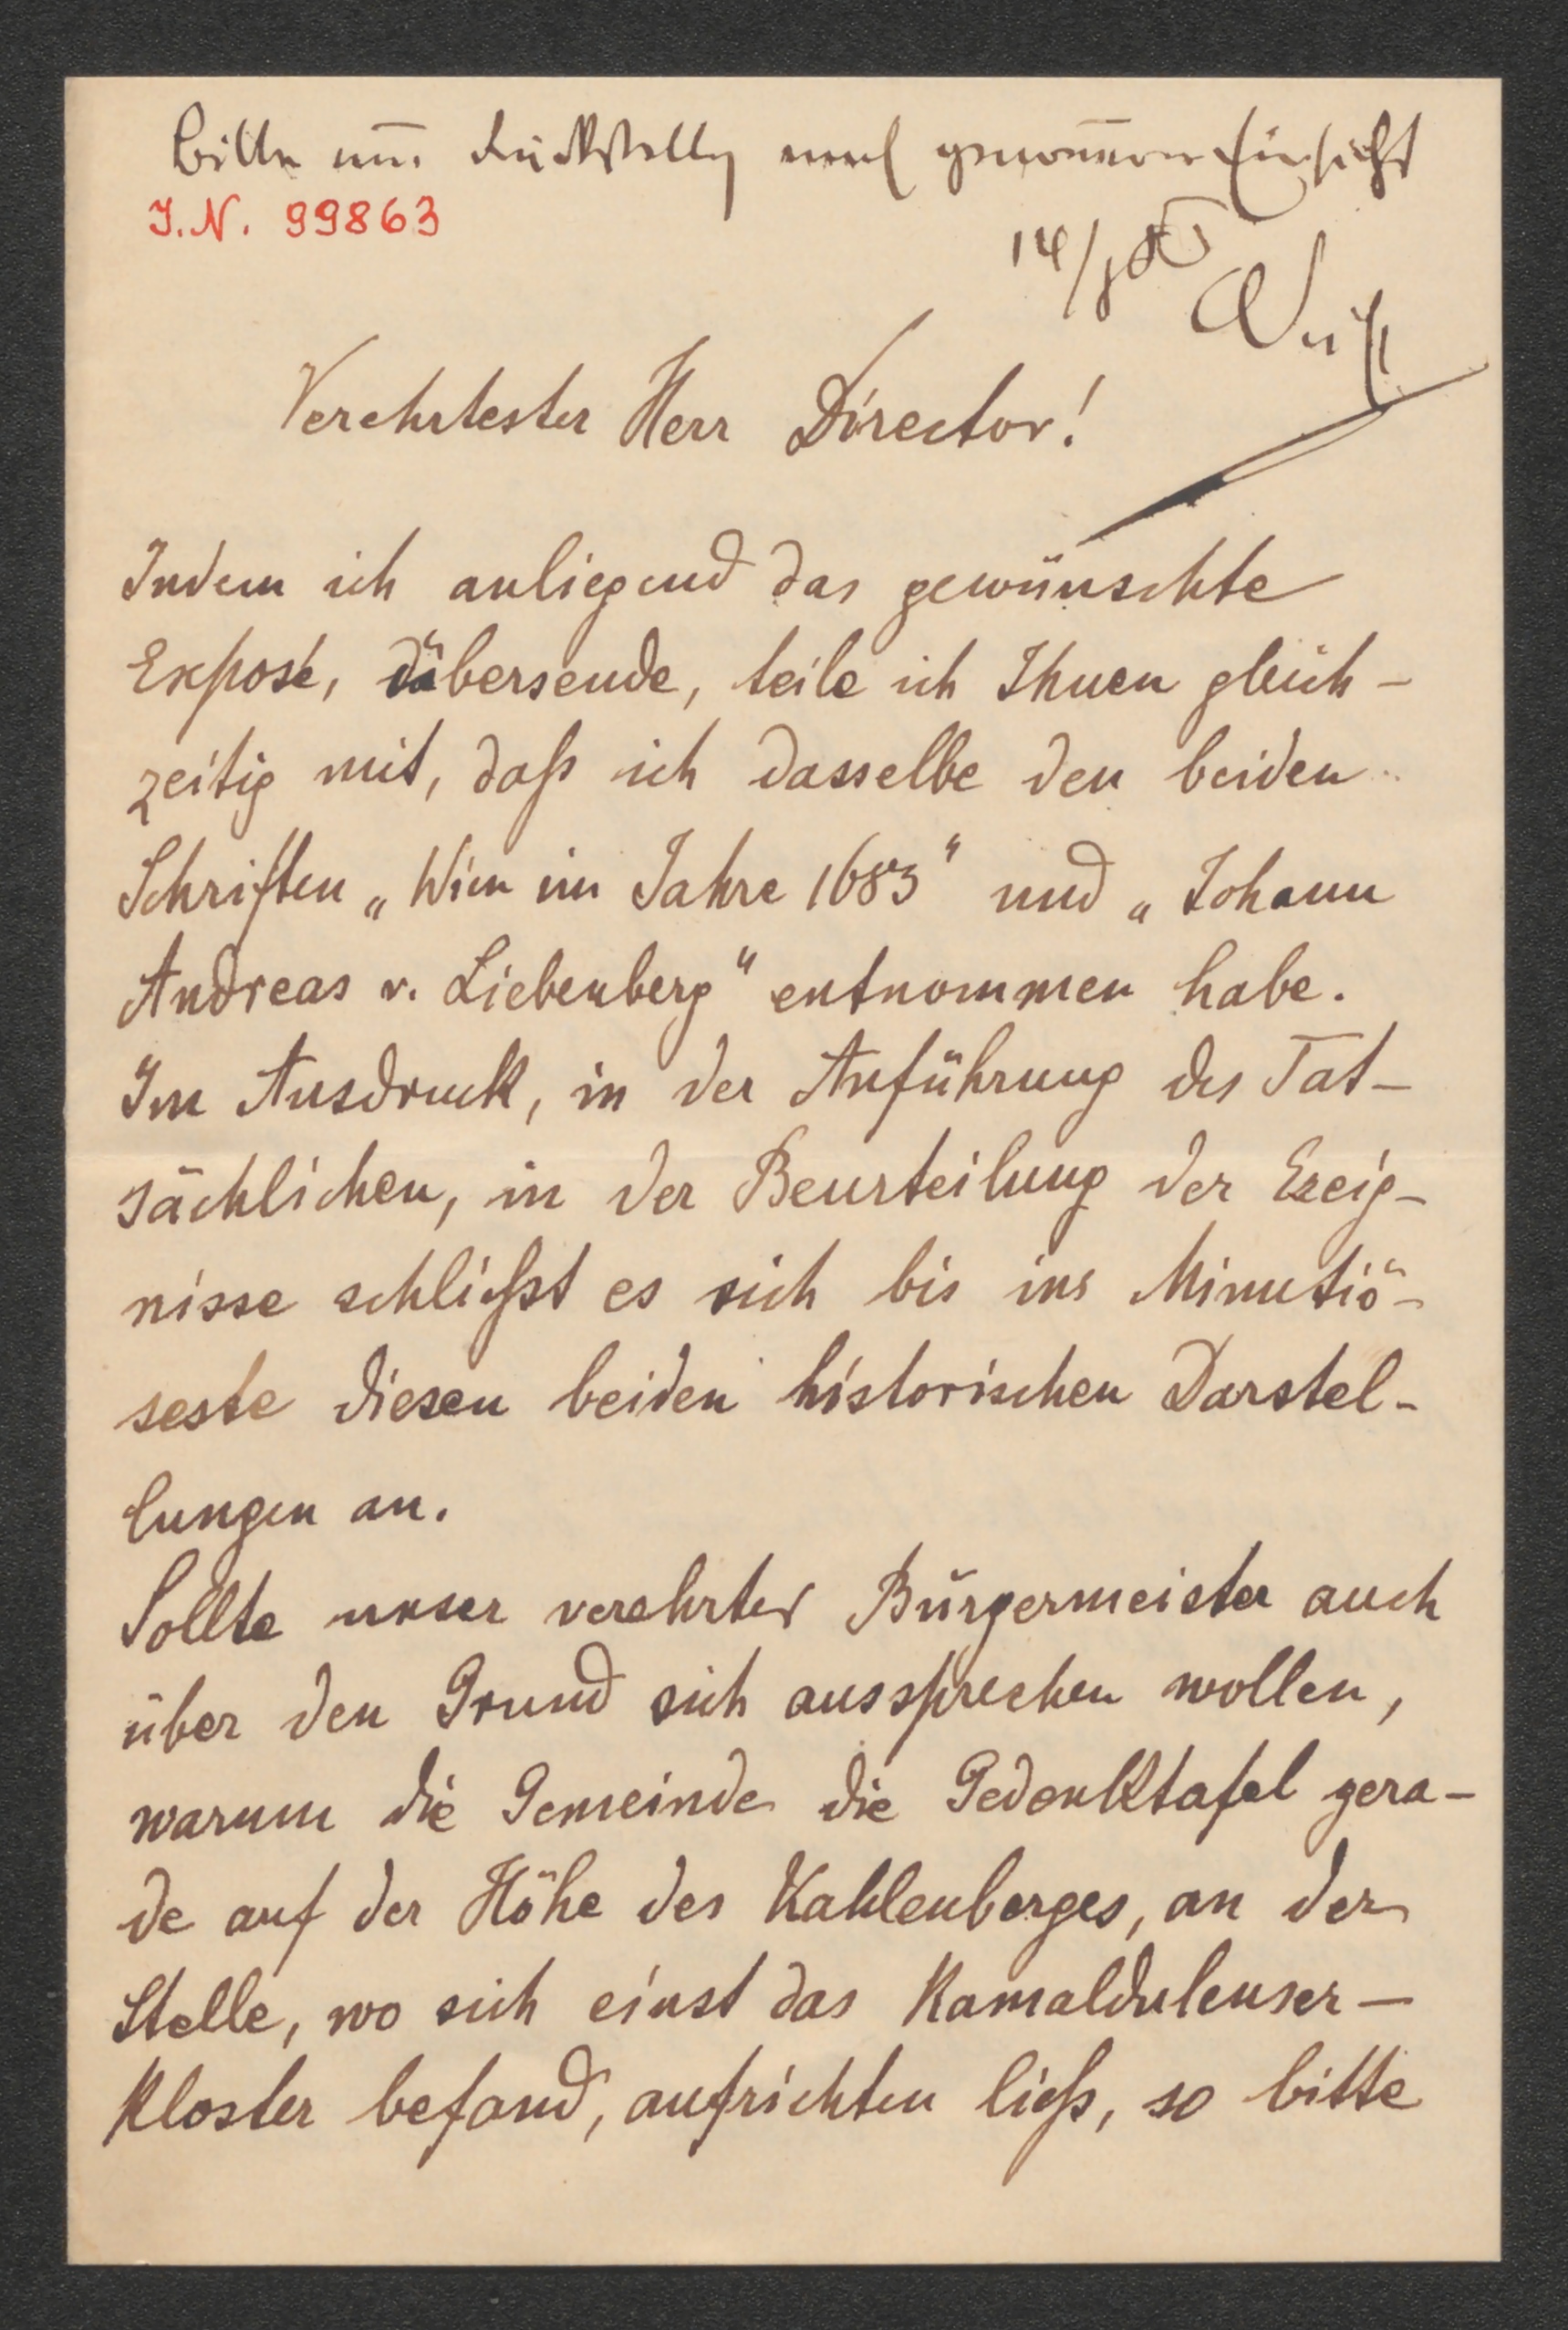 Bitte um Rückstellg nach genom̅ener Einsicht
J.N. 99863
14/
Verehrtester Herr Director!
Indem ich anliegend das gewünschte
Exposé, übersende, teile ich Ihnen gleich-
zeitig mit, daß ich dasselbe den beiden
Schriften „Wien im Jahre 1683" und „Johann
Andreas v. Liebenberg" entnommen habe.
Im Ausdruck, in der Anführung des Tat-
sächlichen, in der Beurteilung der Ereig-
nisse schließt es sich bis ins Minutiö-
seste diesen beiden historischen Darstel-
lungen an.
Sollte unser verehrter Bürgermeister auch
über den Grund sich aussprechen wollen,
warum die Gemeinde die Gedenktafel gera-
de auf der Höhe des Kahlenberges, an der
Stelle, wo sich einst das Kamaldulenser-
Kloster befand, aufrichten ließ, so bitte